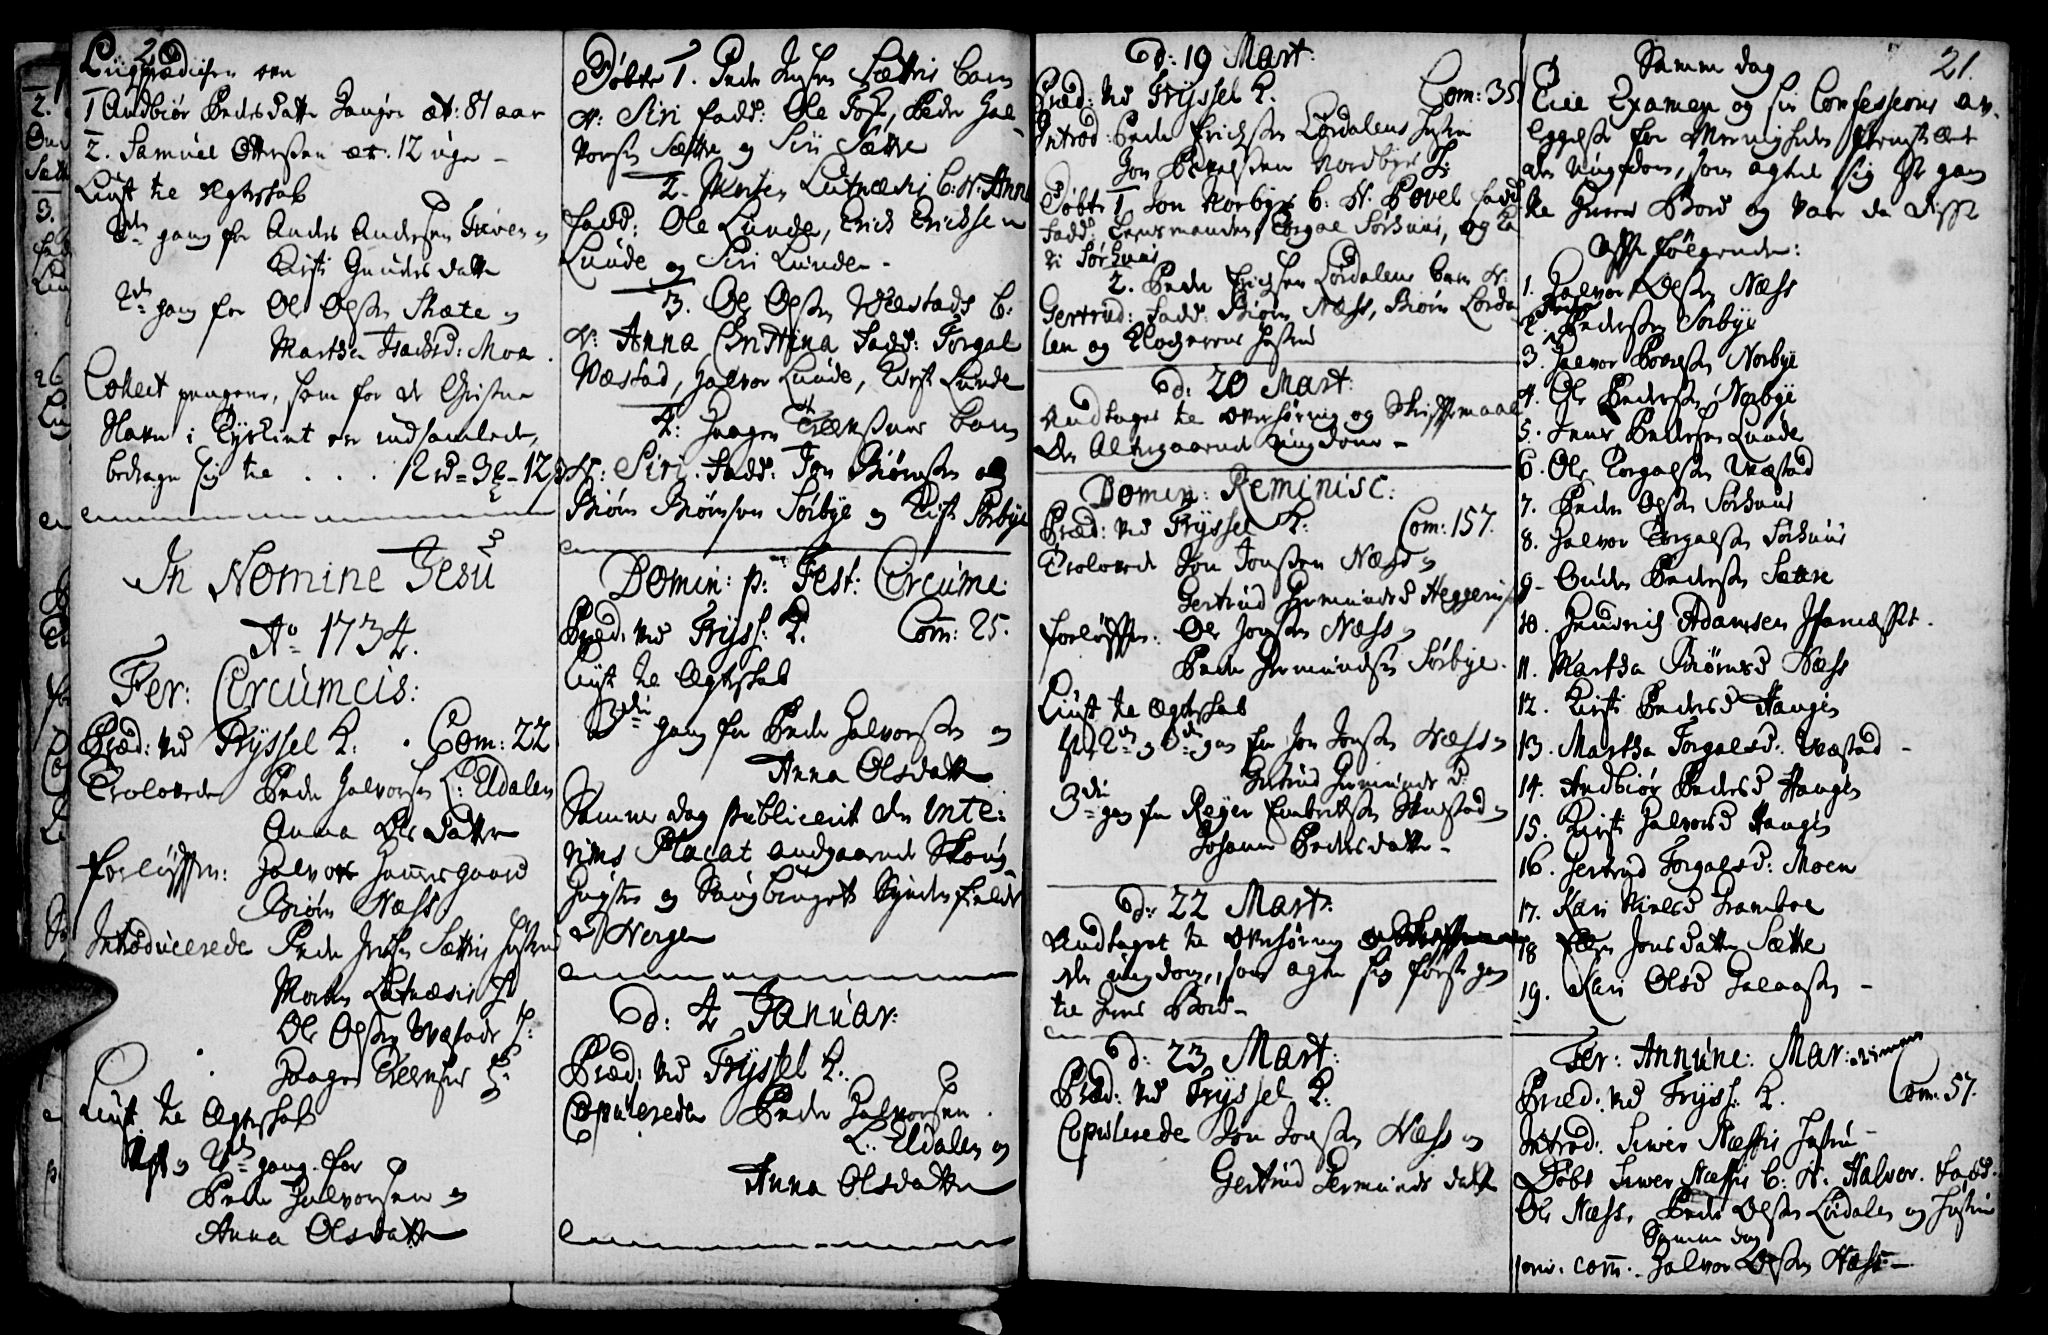 20
Liigprædiken over
1 Andbiør Peders datter Haugen æt: 81 aar
2. Samuel Ottersen æt: 12 uger -
Liust til Ægteskab
gang for Anders Andersen
Kirsti Gunders datter
2den gang for Ole Olsen Skate og
Martha Isachsd: Moe.
Collect pengene, som for de Christne
Slaver i Tyrkiet ere indsamlede,
bedrager sig til . . . 12 rd - 3 - 12
In Nomine Jesu
Ao 1734.
Fer: Circumcis:
Præd: ved Tryssel K. Com: 22
Trolovede Peder Halvorsen L: Eldalen
Anna Ols datter
Forløfter: Halvor Hammergaard
Biørn Næss
Introducerede Peder Jensen Sættris Hustru
Morten Lutnæsis H:
Ole Olsen Wæstads H:
Haagen
Liust til Ægteskab
1ste og 2den gang for
Peder Halvorsen og
Anna Olsdatter
Døbte 1. Peder Jensen Sættris barn
N: Siri fadd: Ole Peder Hal-
vorsen Sætre og Siri Sætre
2. Morten Lutnæsis b: N: Anne
fadd: Ole Lunde, Erich Erichsen
Lunde og Siri Lunde -
3. Ole Olsen Wæstads b:
N: Anna Christina fadd: Torgal
Wæstad, Halvor Lunde, Kirsti Lunde
4: Haagen barn
N: Siri. fadd: Jon Biørnsen og
Biørn Biørnsen Sørbye og Kirsti Sørbye
Domin: p: Fest: Circume:
Præd: ved Tryss: K. Com: 25.
Liust til Ægteskab
3die gang for Peder Halvorsen og
Anna Olsdatter
Samme dag publicerit den Inte-
rims Placat andgaaende Skoug-
hugster og Saugbruget Syndenfields
i Norge
D: 4 Januar:
Præd: ved Tryssel K.
Copulerede Peder Halvorsen
L. Eldalen og
Anna Olsdatter
D: 19 Mart:
Præd: ved Tryssel K. Com: 35
Introd: Peder Erichsen Lørdalens Hustru
Jon Povelsen Nordbyes H:
Døbte 1. Jon Norbyes b: N: Povel fadd
fadd: Lensmanden, Torgal Sørhuus, og Ka
ri Sørhuus
2. Peder Erichsen Lørdalens barn N:
Gertrud: fadd: Biørn Næss, Biørn Lørda
len og Klocherens Hustru
D: 20 Mart:
Andtaget til Overhøring og Skriftemaal
den Altergaaende ungdom -
Domin: Reminisc:
Præd: ved Tryssel K: Com: 157.
Trolovede Jon Jonsen Næss og
Gertrud Hermundsd Heggeriis
forløfter: Ole Jonsen Næss
Peder Hermundsen Sørbye.
Liust til Ægteskab
1ste 2den og 3die gang for Jon Jonsen Næss og
Gertrud Hermunds d:
3die gang for Reyer Embretsen og
Johanne Pedersdatter -
D: 22 Mart:
Andtaget til Overhøring
den ungdom, som agter sig første gang
til Herrens Bord -
D: 23 Mart:
Præd: ved Tryssel K:
Copulerede Jon Jonsen Næss og
Gertrud Hermunds datter
21.
Samme dag
Examen og sin Confessions av-
leggelse for Menigheden fremstillet
den Ungdom, som agted sig første gang
til Herrens Bord og vare da disse
efterfølgende:
1. Halvor Olsen Næss
2. Pedersen Sørbye
3. Halvor Povelsen Norbye
4. Ole Pedersen Norbye
5. Jens Pedersen Lunde
6. Ole Torgalsen Wæstad
7. Peder Olsen Sørhuus
8. Halvor Torgalsen Sørhuus
9. Gunder Pedersen Sætre
10. Hendrich Adamsen
11. Martha Biørnsd Næss
12. Kirsti Pedersd Haugen
13. Martha Torgalsd: Wæstad -
14. Andbiør Pedersd Haugen
15. Kirsti Halvorsd Haugen
16. Gertrud Torgalsd: Moen
17. Kari Nielsd Gramboe
18 Jonsdatter Sætre
19. Kari Olsd Galaasen -
Fer: Annunc: Mar:
Præd: ved Tryss: K. Com: 57.
Introd: Siwer Næssis Hustru -
Døbt Siwer Næssis b: N. Halvor. fadd.
Ole Næss, Peder Olsen Lørdalen og Hustru
Samme dag
com: Halvor Olsen Næss -